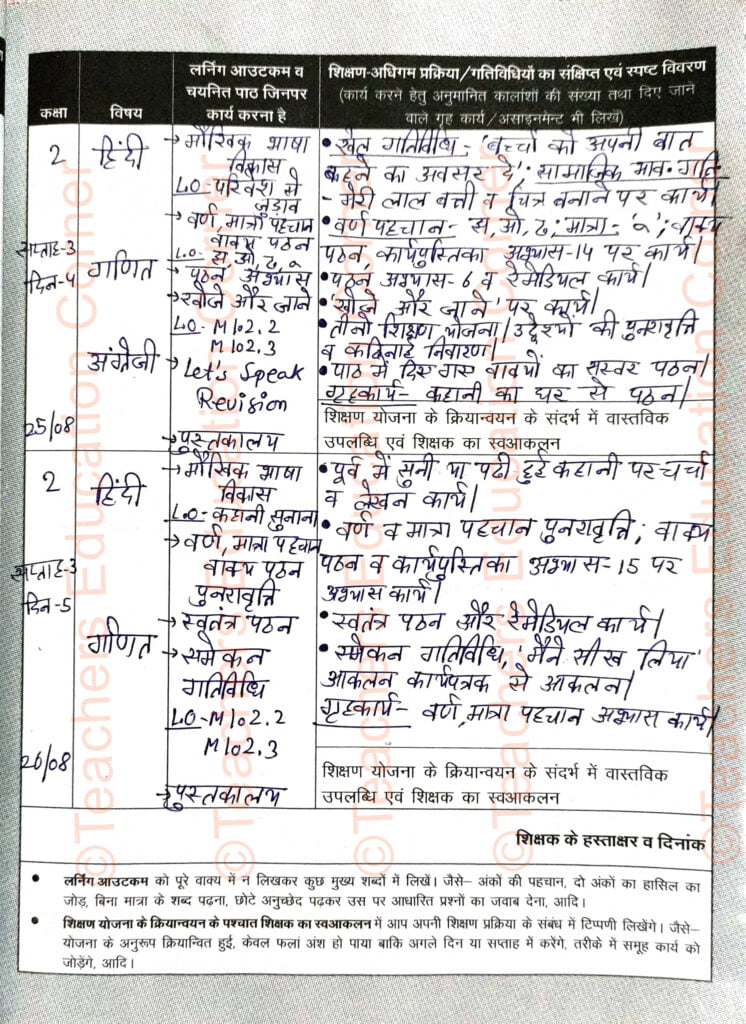 कक्षा
विषय
लर्निंग आउटकम व
चयनित पाठ जिनपर
कार्य करना है
शिक्षण-अधिगम प्रक्रिया/गतिविधियों का संक्षिप्त एवं स्पष्ट विवरण
(कार्य करने हेतु अनुमानित कालांशों की संख्या तथा दिए जाने
वाले गृह कार्य/असाइनमेन्ट भी लिखें)
2
सप्ताह-3
दिन-4
25/08
हिंदी
गणित
अंग्रेजी
→ मौखिक भाषा
विकास
L.O- परिवेश से
जुड़ाव
→ वर्ण, मात्रा पहचान
वाक्य पठन
L.O
→ पठन अभ्यास
→ खोजें और जाने
LO- M102.2
M102.3
→ Let's Speak
Revision
→ पुस्तकालय
• खेल गतिविधि - 'बच्चों को अपनी बात
कहने का अवसर दें'; सामाजिक भाव. गति.
- मेरी लाल बत्ती व चित्र बनाने पर कार्य।
• वर्ण पहचान- झ, ओ, ढ; मात्रा- ; वाक्य
पठन, कार्यपुस्तिका अभ्यास-14 पर कार्य।
• पठन अभ्यास-6 व रेमेडियल कार्य।
• 'खोजें और जाने' पर कार्य।
• तीनो शिक्षण योजना/उद्देश्यो की पुनरावृत्ति
व कठिनाई निवारण।
• पाठ में दिए गए वाक्यों का सस्वर पठन।
गृहकार्य- कहानी का घर से पठन।
शिक्षण योजना के क्रियान्वयन के संदर्भ में वास्तविक
उपलब्धि एवं शिक्षक का स्वआकलन
2
सप्ताह-3
दिन-5
26/08
हिंदी
गणित
→ मौखिक भाषा
विकास
LO- कहानी सुनाना
→ वर्ण, मात्रा पहचान
वाक्य पठन
पुनरावृत्ति
→ स्वतंत्र पठन
→ समेकन
गतिविधि
LO- M102.2
M102.3
→ पुस्तकालय
• पूर्व में सुनी या पढी हुई कहानी पर चर्चा
व लेखन कार्य।
• वर्ण व मात्रा पहचान पुनरावृत्ति; वाक्य
पठन व कार्यपुस्तिका अभ्यास-15 पर
अभ्यास कार्य।
• स्वतंत्र पठन और रेमेडियल कार्य।
• समेकन गतिविधि, 'मैंने सीख लिया'
आकलन कार्यपत्रक से आकलन।
गृहकार्य- वर्ण, मात्रा पहचान अभ्यास कार्य।
शिक्षण योजना के क्रियान्वयन के संदर्भ में वास्तविक
उपलब्धि एवं शिक्षक का स्वआकलन
शिक्षक के हस्ताक्षर व दिनांक
• लर्निंग आउटकम को पूरे वाक्य में न लिखकर कुछ मुख्य शब्दों में लिखें। जैसे– अंकों की पहचान, दो अंकों का हासिल का
जोड़, बिना मात्रा के शब्द पढ़ना, छोटे अनुच्छेद पढ़कर उस पर आधारित प्रश्नों का जवाब देना, आदि।
• शिक्षण योजना के क्रियान्वयन के पश्चात शिक्षक का स्वआकलन में आप अपनी शिक्षण प्रक्रिया के संबंध में टिप्पणी लिखेंगे। जैसे–
योजना के अनुरूप क्रियान्वित हुई, केवल फलां अंश हो पाया बाकि अगले दिन या सप्ताह में करेंगे, तरीके में समूह कार्य को
जोड़ेंगे, आदि।
©Teachers Education Corner
©Teachers Education Corner
©Teachers Education Corner
©Teachers Education Corner
©Teachers Education Corner